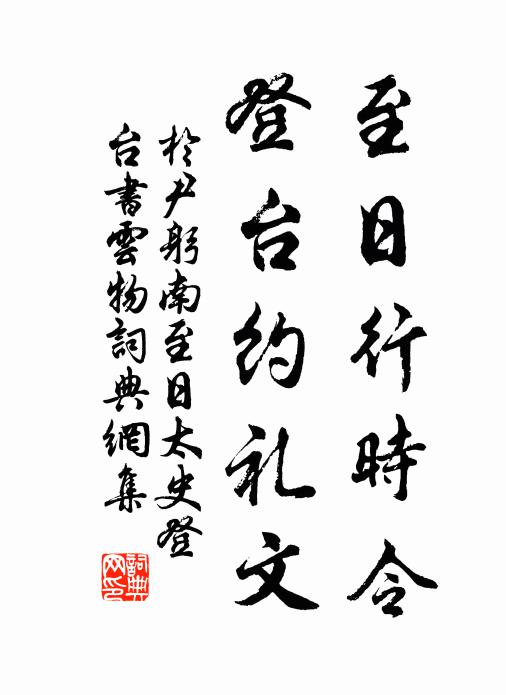 至日行時令
登台約礼文
於尹躬南至日太史登
台書雲物詞典網集
詞典
网印